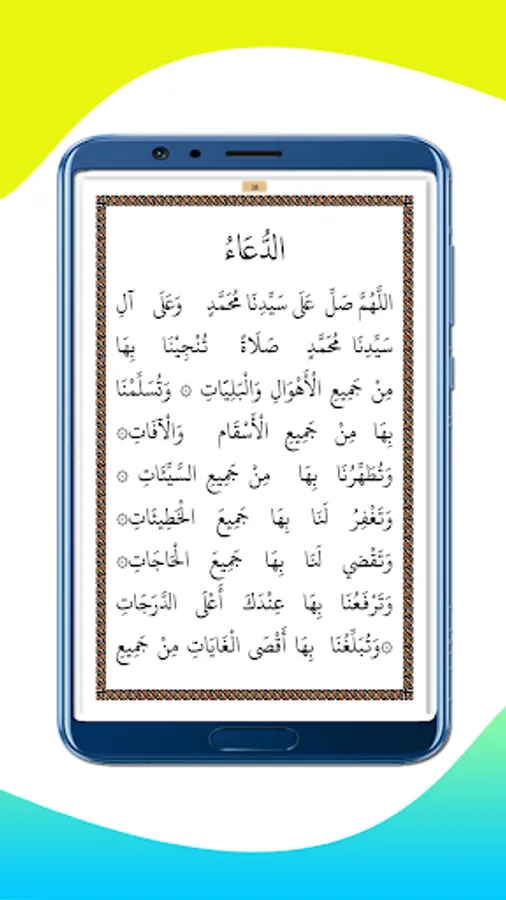 الدُّعَاءُ
اللَّهُمَّ صَلِّ عَلَى سَيِّدِنَا مُحَمَّدٍ وَعَلَى آلِ
سَيِّدِنَا مُحَمَّدٍ صَلَاةً تُنْجِيْنَا بِهَا
مِنْ جَمِيعِ الْأَهْوَالِ وَالْبَلِيَّاتِ ۞ وَتُسَلِّمْنَا
بِهَا مِنْ جَمِيعِ الْأَسْقَامِ وَالْآفَاتِ۞
وَتُطَهِّرُنَا بِهَا مِنْ جَمِيعِ السَّيِّئَاتِ ۞
وَتَغْفِرُ لَنَا بِهَا جَمِيعَ الْخَطِيئَاتِ۞
وَتَقْضِي لَنَا بِهَا جَمِيعَ الْحَاجَاتِ۞
وَتَرْفَعُنَا بِهَا عِنْدَكَ أَعْلَى الدَّرَجَاتِ
۞وَتُبَلِّغُنَا بِهَا أَقْصَى الْغَايَاتِ مِنْ جَمِيعِ